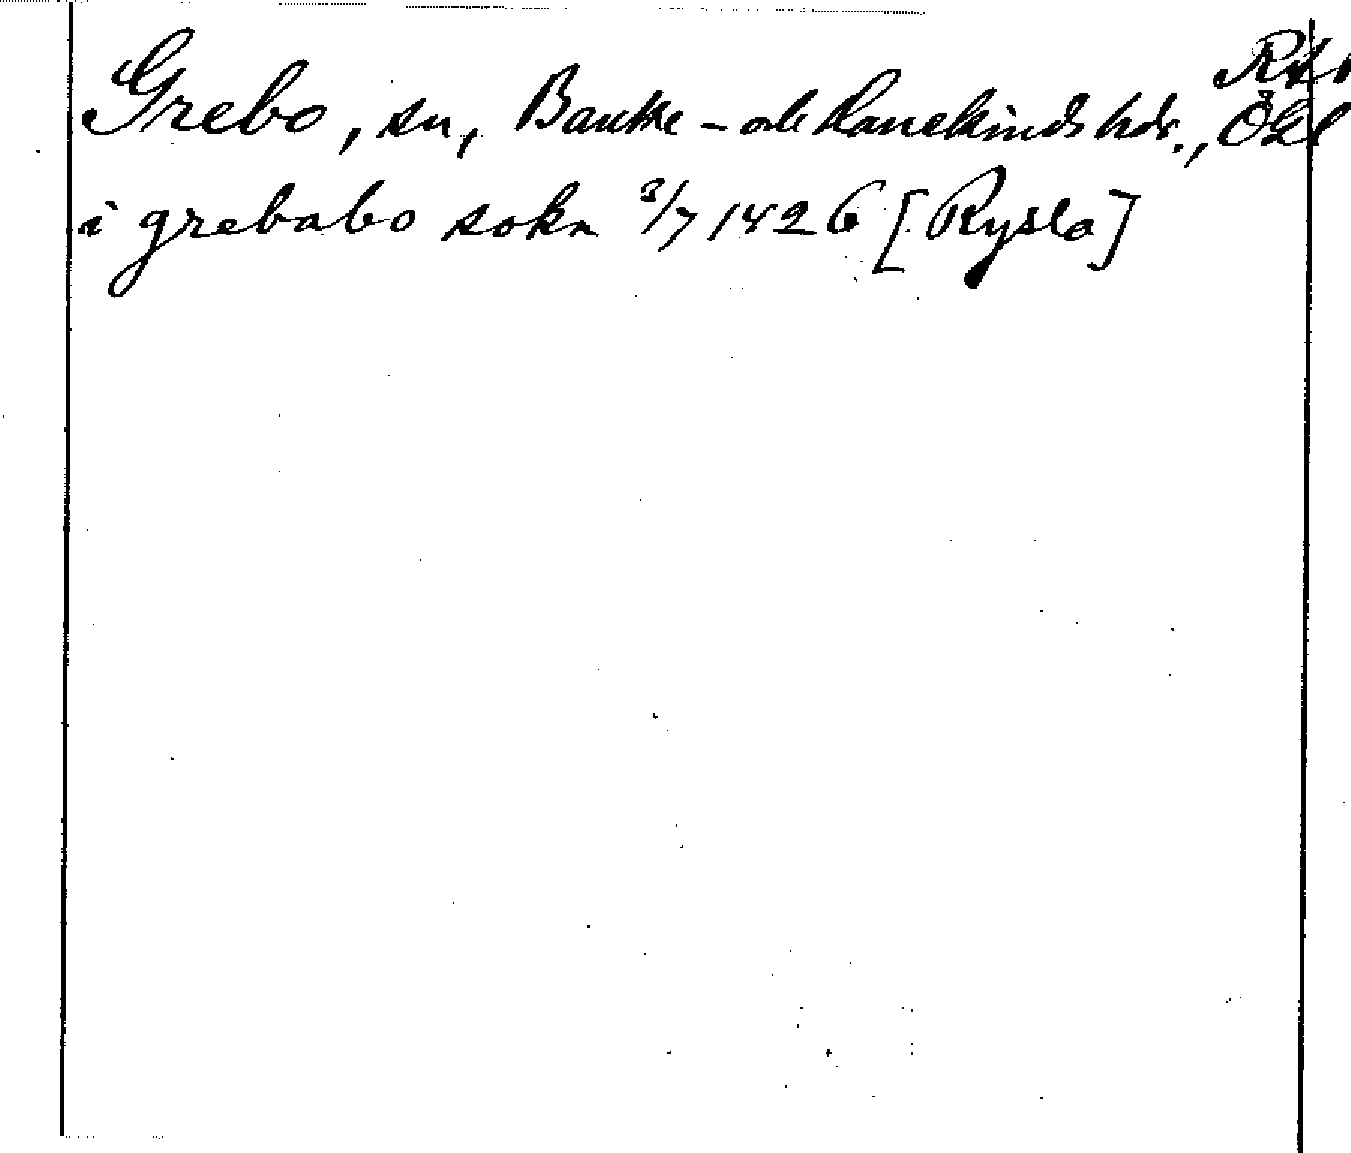 Grebo, sn, Banke- och Hanekinds hdr., Ögl
i grebabo sokn 3/7 1426 [Rysla]